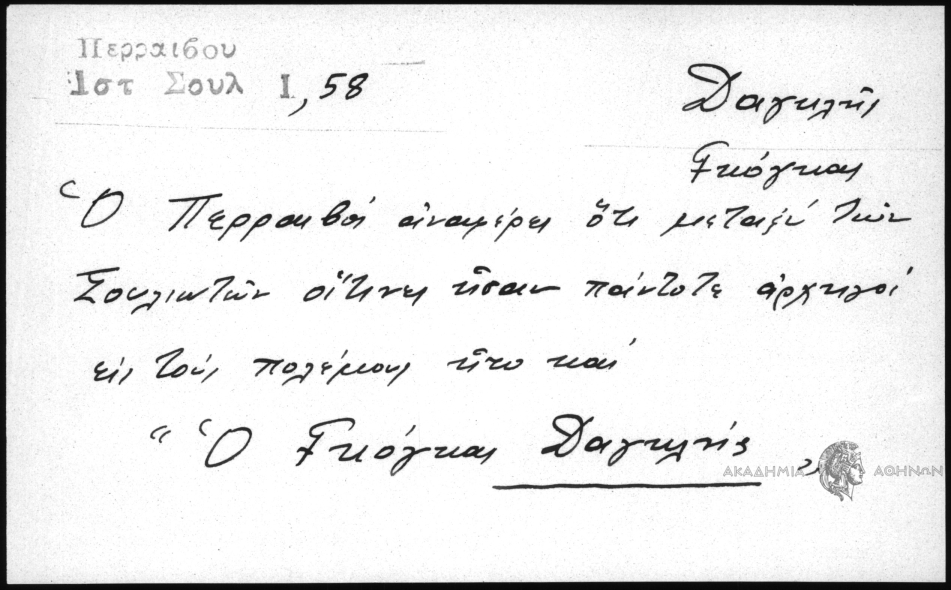 Περραιβου
Ιστ Σουλ Ι, 58
Δαγκλῆς
Γκόγκας
Ὁ Περραιβός ἀναφέρει ὅτι μεταξύ τῶν
Σουλιωτῶν οἵτινες ἦσαν πάντοτε ἀρχηγοί
εἰς τούς πολέμους ἦτο καί
" Ὁ Γκόγκας Δαγκλῆς "
ΑΚΑΔΗΜΙΑ ΑΘΗΝΩΝ